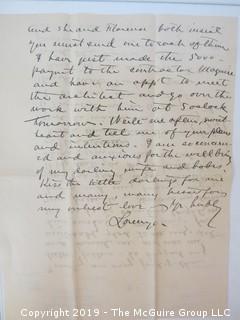 and she and Florence both insist
you must send one to each of them
I have just made the 5000
payment to the contractor Maguire
and have an appt to meet
the architect and go over the
work with him at 5 oclock
Tomorrow. Write me often, sweet
heart and tell me of your plans
and intentions. I am so concern-
ed and anxious for the well being
of my darling wife and babes.
Kiss the little darlings for me
and many, many kisses for
my dearest love - Yr hubby
Lorenzo.
Copyright 2019 - The McGuire Group LLC